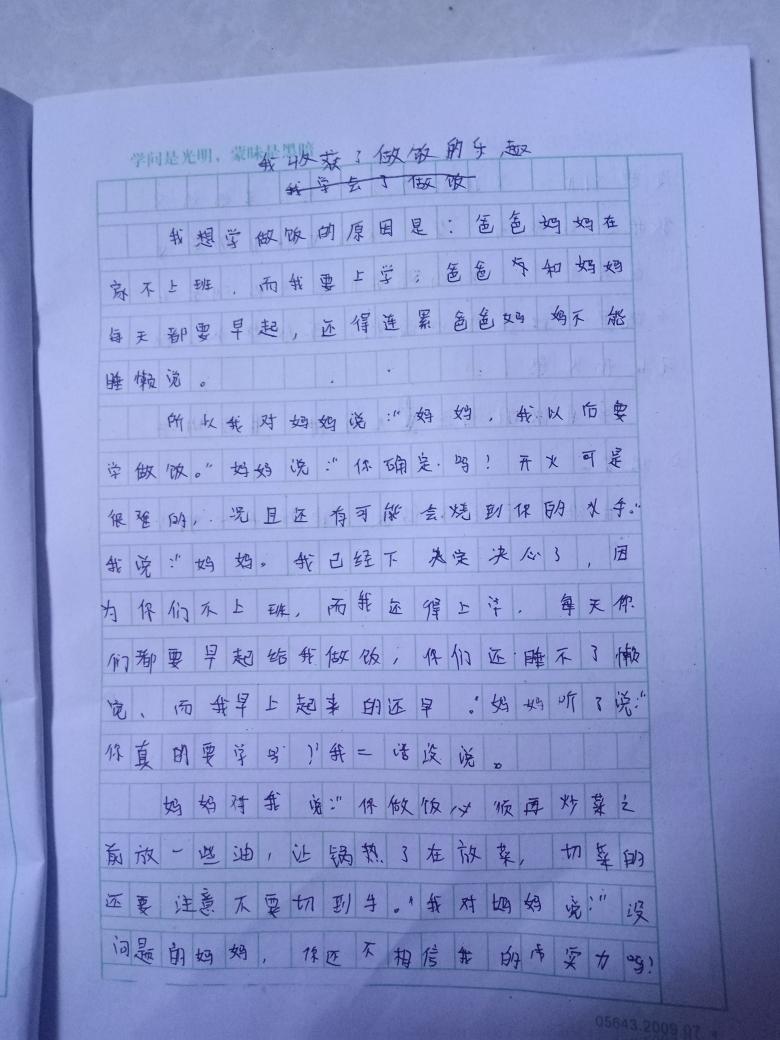 学问是光明，蒙昧是黑暗
我收获了做饭的乐趣
我学会了做饭
我想学做饭的原因是：爸爸妈妈在
家不上班，而我要上学；爸爸和妈妈
每天都要早起，还得连累爸爸妈妈不能
睡懒说。
所以我对妈妈说：“妈妈，我以后要
学做饭。”妈妈说：“你确定吗！开火可是
很难的，况且还有可能会烧到你的手。”
我说：“妈妈。我已经下定决心了，因
为你们不上班，而我还得上学，每天你
们都要早起给我做饭，你们还睡不了懒
觉、而我早上起来的还早。”妈妈听了说：“
你真的要学吗？”我二话没说。
妈妈对我说：“你做饭必须再炒菜之
前放一些油，让锅热了在放菜，切菜的
还要注意不要切到手。”我对妈妈说：“没
问题的妈妈，你还不相信我的实力吗！
05643.2009.07